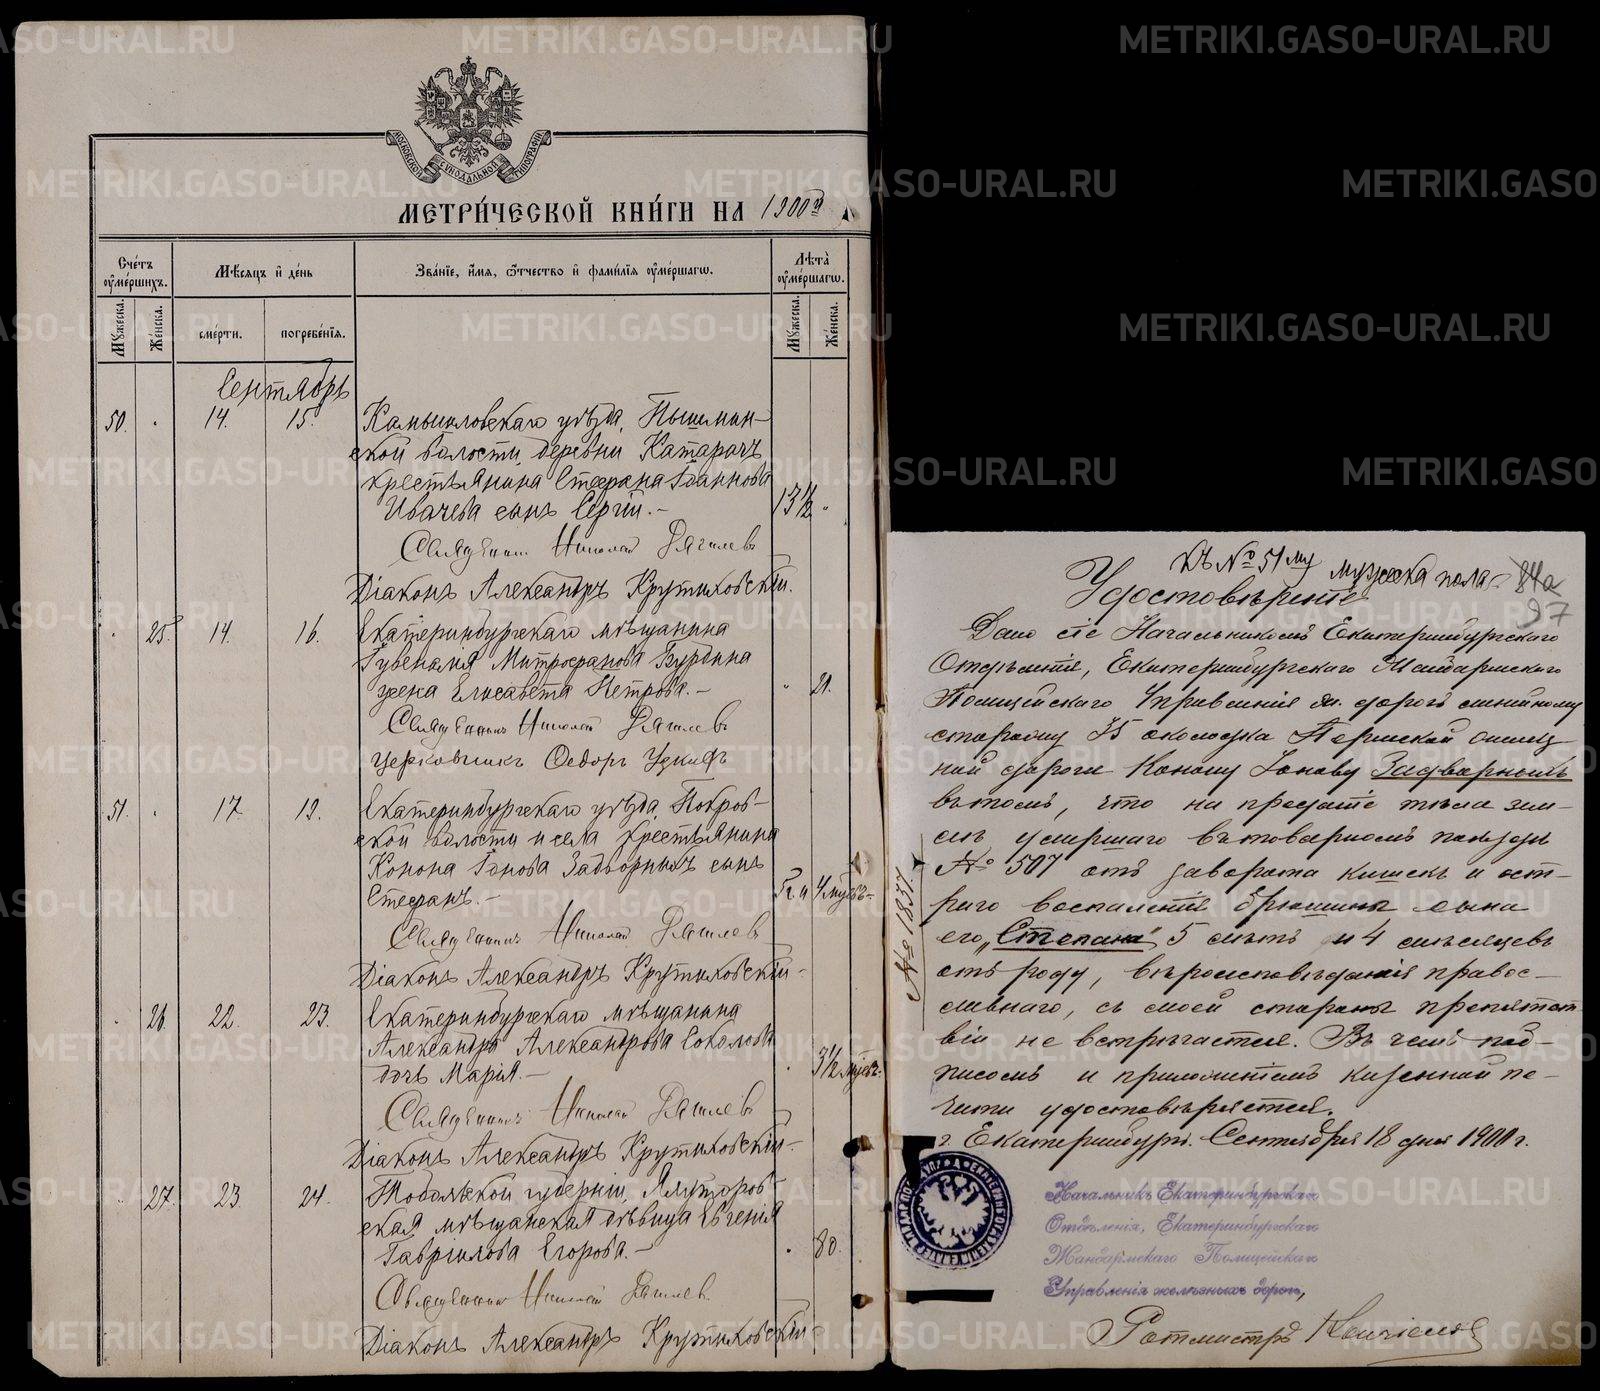 МОСКОВСКОЙ СѴНОДАЛЬНОЙ ТИПОГРАФІИ
МЕТРИ́ЧЕСКОЙ КНИ́ГИ НА 1900й
Сче́тъ оумéршихъ.
Мѣ́сяцъ и҆ де́нь
Зва́нїе, и҆́мя, ѻ҆́тчество и҆ фами́лїя оу҆мéршагѡ.
Лѣ́та оу҆мéршагѡ.
Мꙋ́жеска.
Же́нска.
сме́рти.
погребе́нїя.
Мꙋ́жеска.
Же́нска.
Сентябрь
50. 14. 15. Камышловскаго уѣзда, Пышмин-
ской волости, деревни Катарачъ
крестьянина Стефана Іоаннова
Ивачева сынъ Сергій.– 13½
Священникъ Николай
Діаконъ Александръ Крутиховскій.
25. 14. 16. Екатеринбургскаго мѣщанина
Іувеналія Митрофанова Бурдина
жена Елисавета Петрова.– 21.
Священникъ Николай
Церковникъ Ѳедоръ
51. 17. 19. Екатеринбургскаго уѣзда, Покров-
ской волости и села крестьянина
Конона Іонова Задворныхъ сынъ
Стефанъ.– 5 г. и 4 мѣс.–
Священникъ Николай
Діаконъ Александръ Крутиховскій–
26. 22. 23. Екатеринбургскаго мѣщанина
Александра Александрова Соколова
дочь Марія.– 3½ мѣсяц.
Священникъ Николай
Діаконъ Александръ Крутиховскій–
27. 23. 24. Тобольской губерніи, Ялуторов-
ская мѣщанская дѣвица Евгенія
Гавріилова Егорова.– 80.
Священникъ Николай
Діаконъ Александръ Крутиховскій–
Къ № 51му мужеска пола
84а
97
Удостовѣреніе
Дано сіе Начальникомъ Екатеринбургскаго
Отдѣленія, Екатеринбургскаго Жандармскаго
Полицейскаго Управленія ж. дорогъ линейному
сторожу 35 околодка Пермской желѣз-
ной дороги Конону Іонову Задворныхъ
въ томъ, что на преданіе тѣла зем-
лѣ умершаго въ товарномъ поѣздѣ
№ 507 отъ заворота кишекъ и ост-
раго воспаленія брюшины сына
его „Степана“ 5 лѣтъ и 4 мѣсяцевъ
отъ роду, вѣроисповѣданія правос-
лавнаго, съ моей стороны препятст-
вій не встрѣчается. Въ чемъ под-
писомъ и приложеніемъ казенной пе-
чати удостовѣряется.
г. Екатеринбургъ. Сентября 18 дня 1900 г.
№ 1837.
Начальникъ Екатеринбургскаго
Отдѣленія, Екатеринбургскаго
Жандармскаго Полицейскаго
Управленія желѣзныхъ дорогъ,
Ротмистръ
METRIKI.GASO-URAL.RU